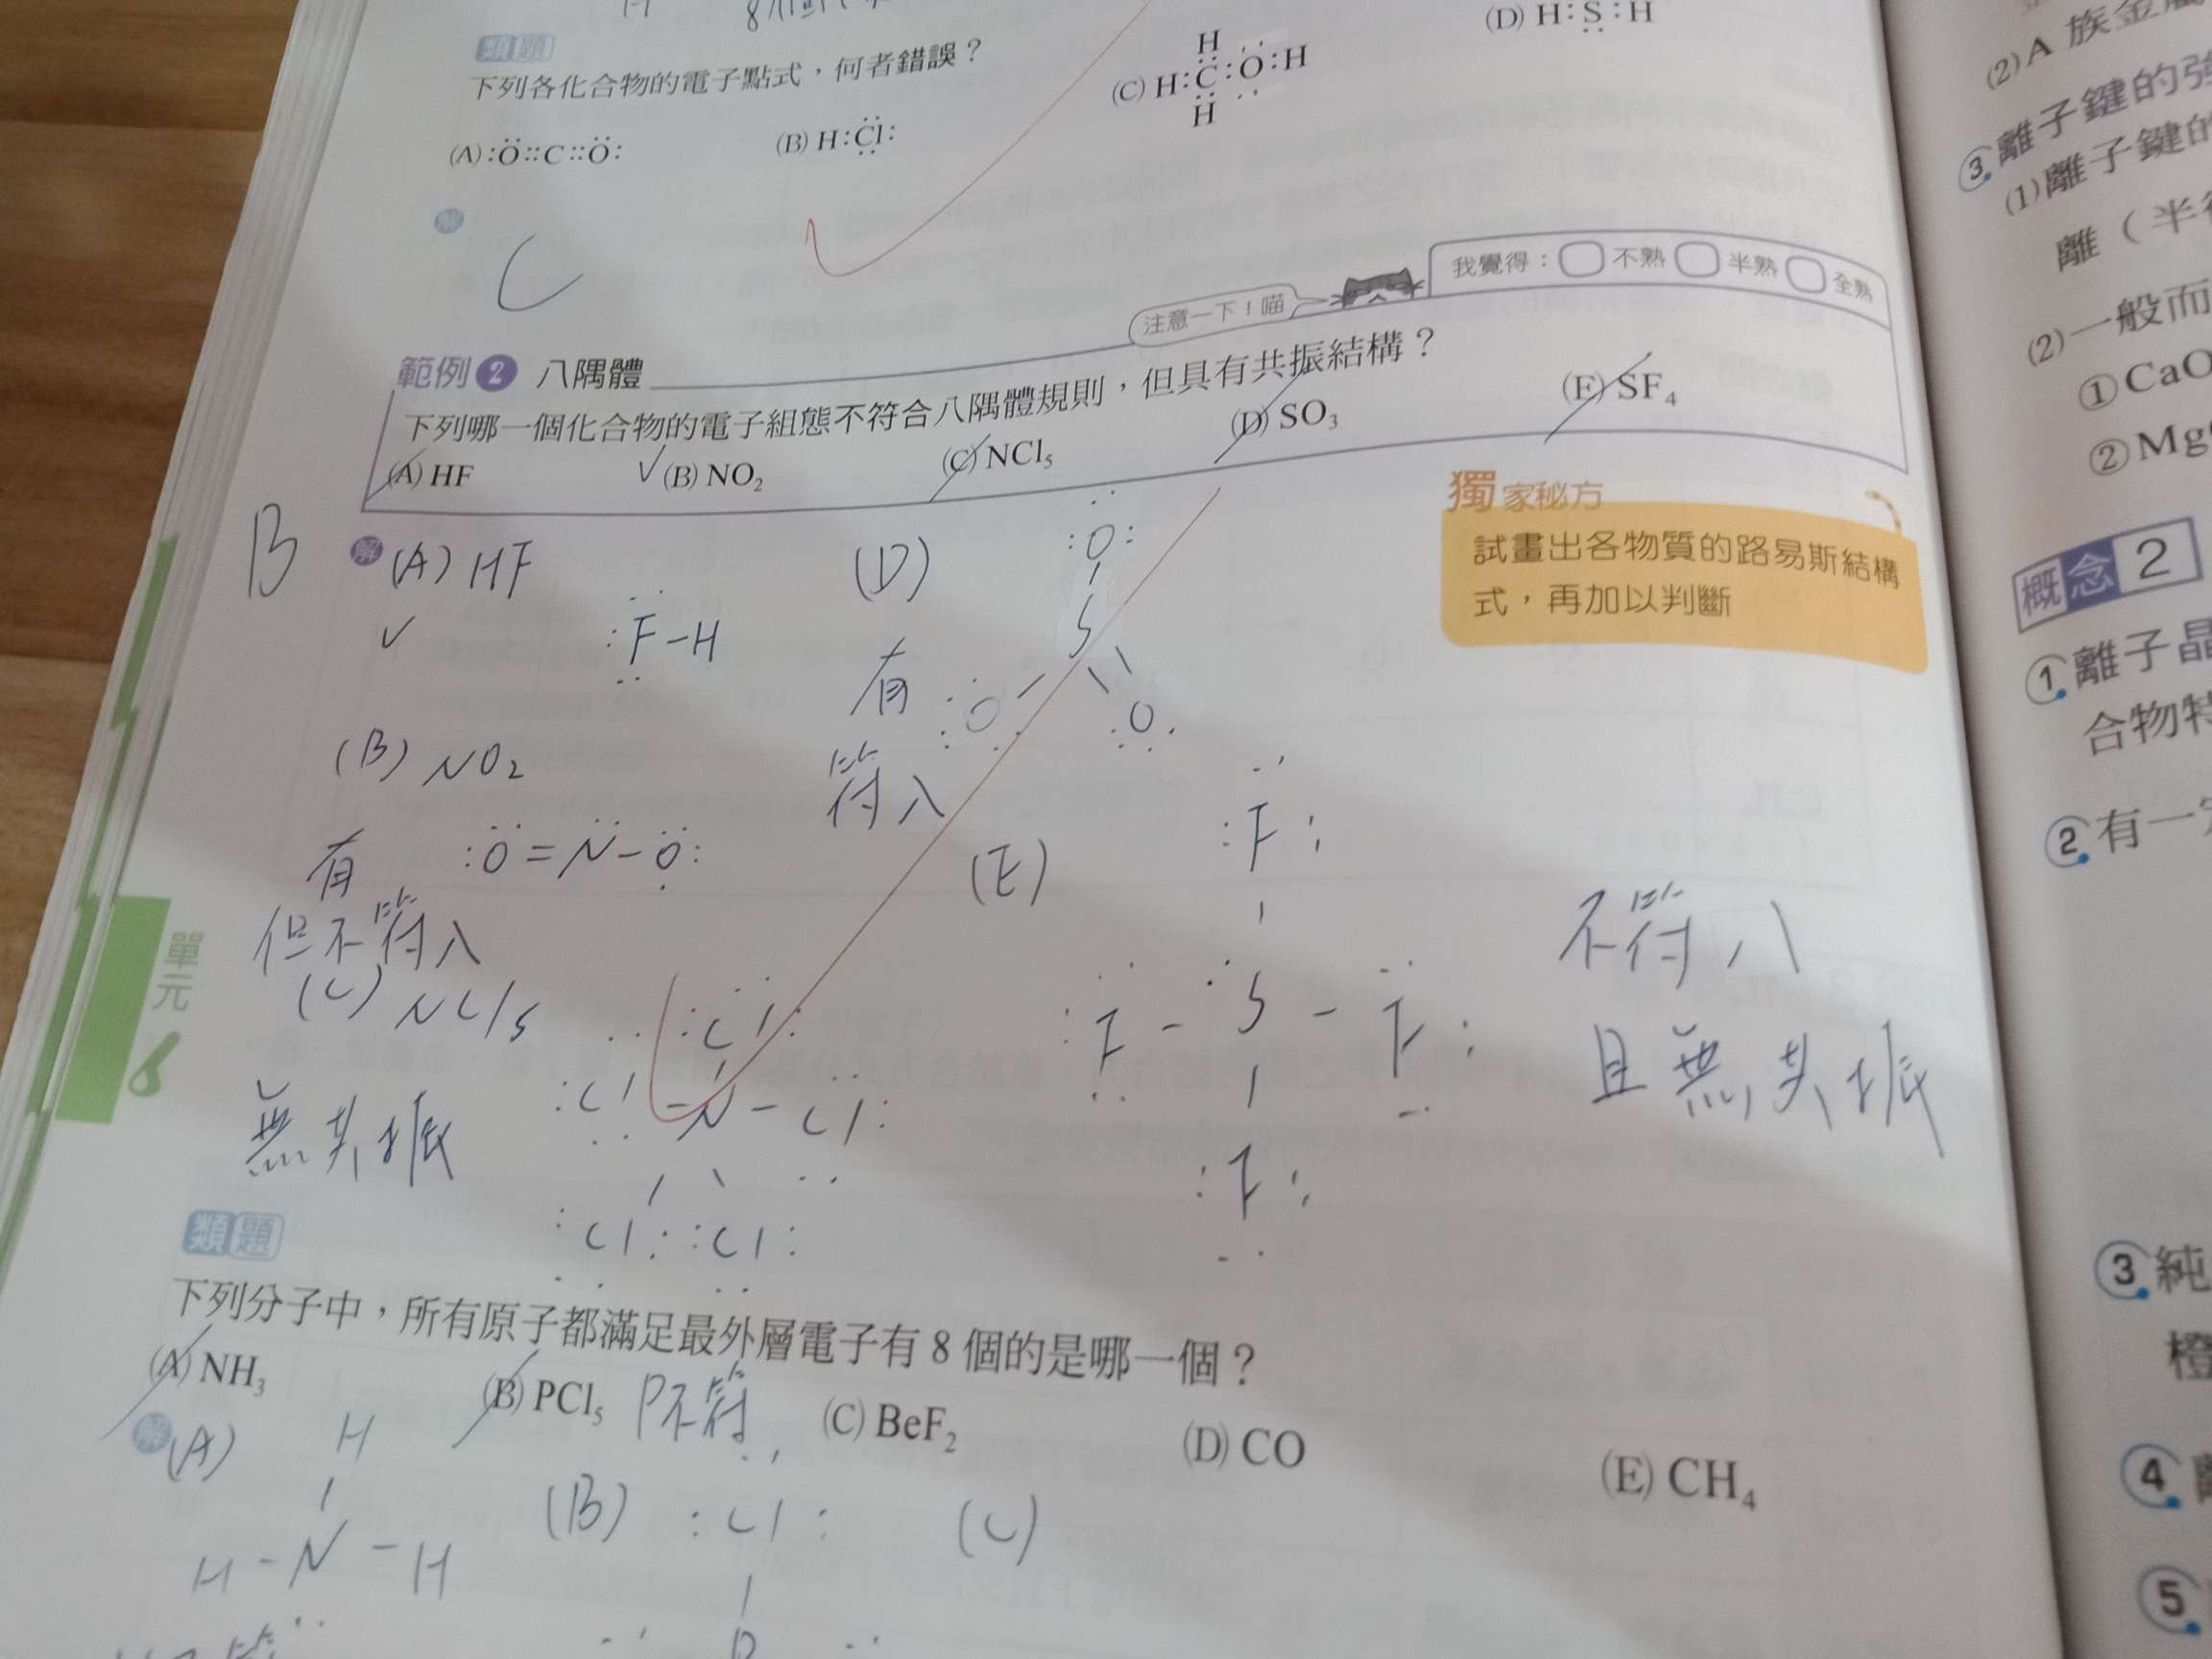 類題
下列各化合物的電子點式，何者錯誤？
(A) :Ö::C::Ö:
(B) H:Cl:
(C) H:C:O:H
H
H
(D) H:S:H
解
C
我覺得：不熟 半熟 全熟
注意一下！喵
範例2 八隅體
下列哪一個化合物的電子組態不符合八隅體規則，但具有共振結構？
(A) HF
✓(B) NO₂
(C) NCl₅
(D) SO₃
(E) SF₄
獨家秘方
試畫出各物質的路易斯結構
式，再加以判斷
B
解 (A) HF
✓
:F-H
(B) NO₂
:Ö=N-Ö:
有
但不符八
(C) NCl₅
無共振
:Cl:
:Cl-N-Cl:
:Cl: :Cl:
(D)
:O:
S
O O
有
符八
(E)
:F:
:F-S-F:
:F:
不符八
且無共振
單元
6
類題
下列分子中，所有原子都滿足最外層電子有 8 個的是哪一個？
(A) NH₃
(B) PCl₅ P不符
(C) BeF₂
(D) CO
(E) CH₄
解 (A)
H
H-N-H
(B)
:Cl:
P
(C)
(2)A 族金屬
3 離子鍵的強
(1)離子鍵的
離（半徑
(2)一般而
①CaO
②Mg
概念2
1 離子晶
合物特
2 有一定
3 純
橙
4
5